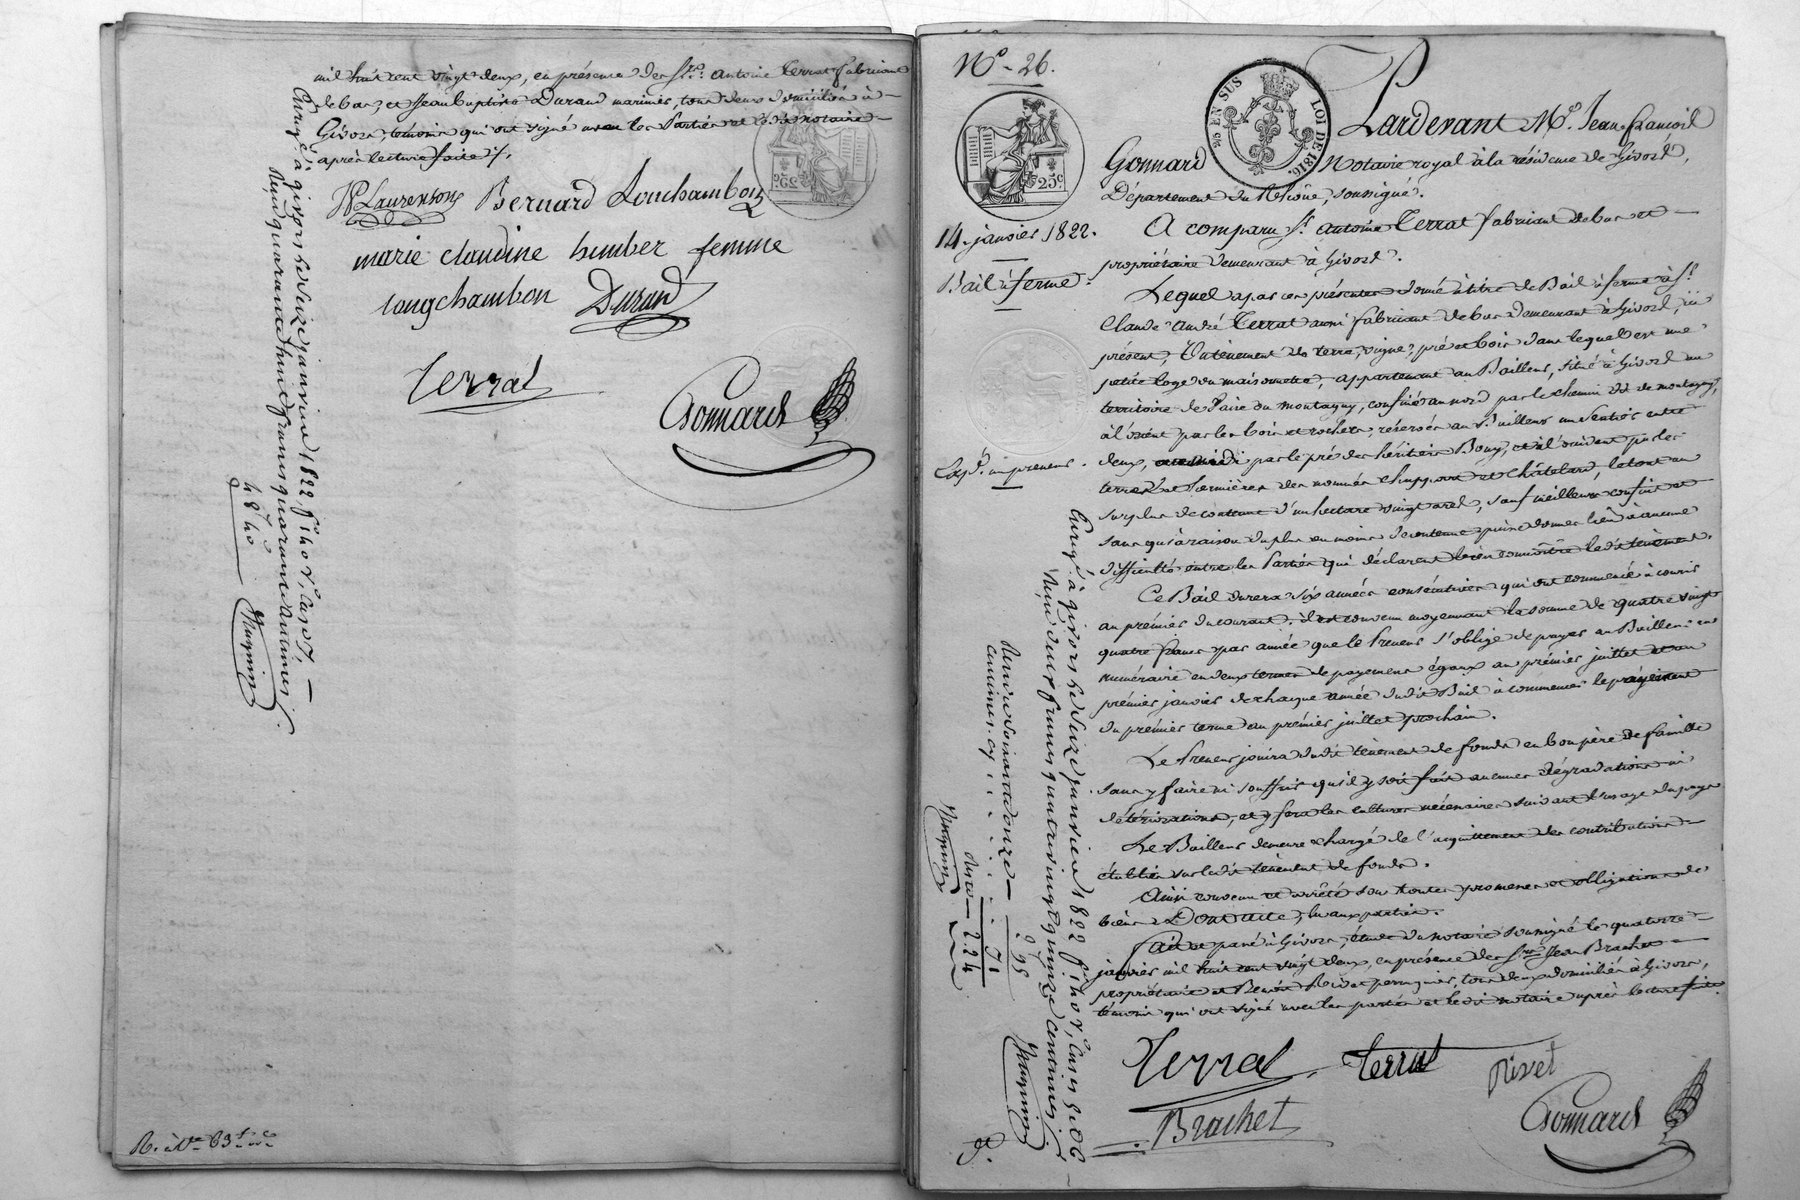 mil huit cent vingt deux, en présence des Srs. Antoine Terrat fabricant
de bas, et Jean baptiste Durand marinier, tous deux domiciliés à
Givors, témoins qui ont signé avec les Parties et led. notaire
après lecture faite ./.
Laurenson Bernard Lonchambon
marie claudine himber femme
longchambon Durand
Terrat
Gonnard
Enregt. à givors le Seize janvier 1822 fo. 40 Ro.
Reçu quarante huit francs quarante centimes.
48 40
R. à Ve. 63
No. 26.
25c
95 EN SUS
LOI DE 1816.
14. janvier 1822.
Bail à ferme.
Pardevant Me. Jean françois
Gonnard Notaire royal à la résidence de Givors,
Département du Rhône, soussigné.
A comparu Sr. Antoine Terrat fabricant de bas et
propriétaire demeurant à Givors.
Lequel a par ces présentes donné à titre de Bail à ferme à Sr.
Claude André Terrat aussi fabricant de bas demeurant à Givors, ici
présent, Un tènement de terre, vigne, pré et bois dans lequel est une
petite loge ou maisonnette, appartenant au Bailleur, situé à Givors au
territoire de faire du montagny, confiné au nord par le chemin de montagny,
à l'orient par les bois et rochers, réservés au Sr. Bailleur un sentier entre
deux, au midi par le pré des héritiers Bouy, et à l'occident par les
terres et hermières des nommés Chappard et Châtelard, le tout au
surplus de contenue d'un hectare vingt ares, sauf meilleurs confins et
sans qu'à raison du plus ou moins de contenue puisse donner lieu à aucune
difficulté entre les Parties qui déclarent bien connoître led. tènement.
Ce Bail durera six années consécutives qui ont commencé à courir
au premier du courant, il est convenu moyennant la somme de quatre vingt
quatre francs par année que le Preneur s'oblige de payer au Bailleur en
numéraire en deux termes de payement égaux au premier juillet et au
premier janvier de chaque année dudit Bail à commencer le payement
du premier terme au premier juillet prochain.
Le Preneur jouira dudit tènement de fonds en bon père de famille
sans y faire ni souffrir qu'il y soit fait aucunes dégradations ni
détériorations, et y fera les cultures nécessaires suivant l'usage du pays
Le Bailleur demeure chargé de l'acquittement des contributions
établies sur ledit tènement de fonds.
Ainsi convenu et arrêté sous toutes promesses et obligations de
biens. Dont acte, lu aux parties.
fait et passé à Givors, étude du notaire soussigné le quatorze
janvier mil huit cent vingt deux, en présence des Srs. Jean Brachet
propriétaire et Benoit Rivet perruquier, tous deux domiciliés à Givors,
témoins qui ont signé avec les parties et ledit notaire après lecture faite
Terrat Terrat Rivet
Brachet Gonnard
Enregt. à givors le Seize janvier 1822 fo. 40 Ro.
Reçu deux francs quatre vingt quinze centimes.
2.95
71
2.24